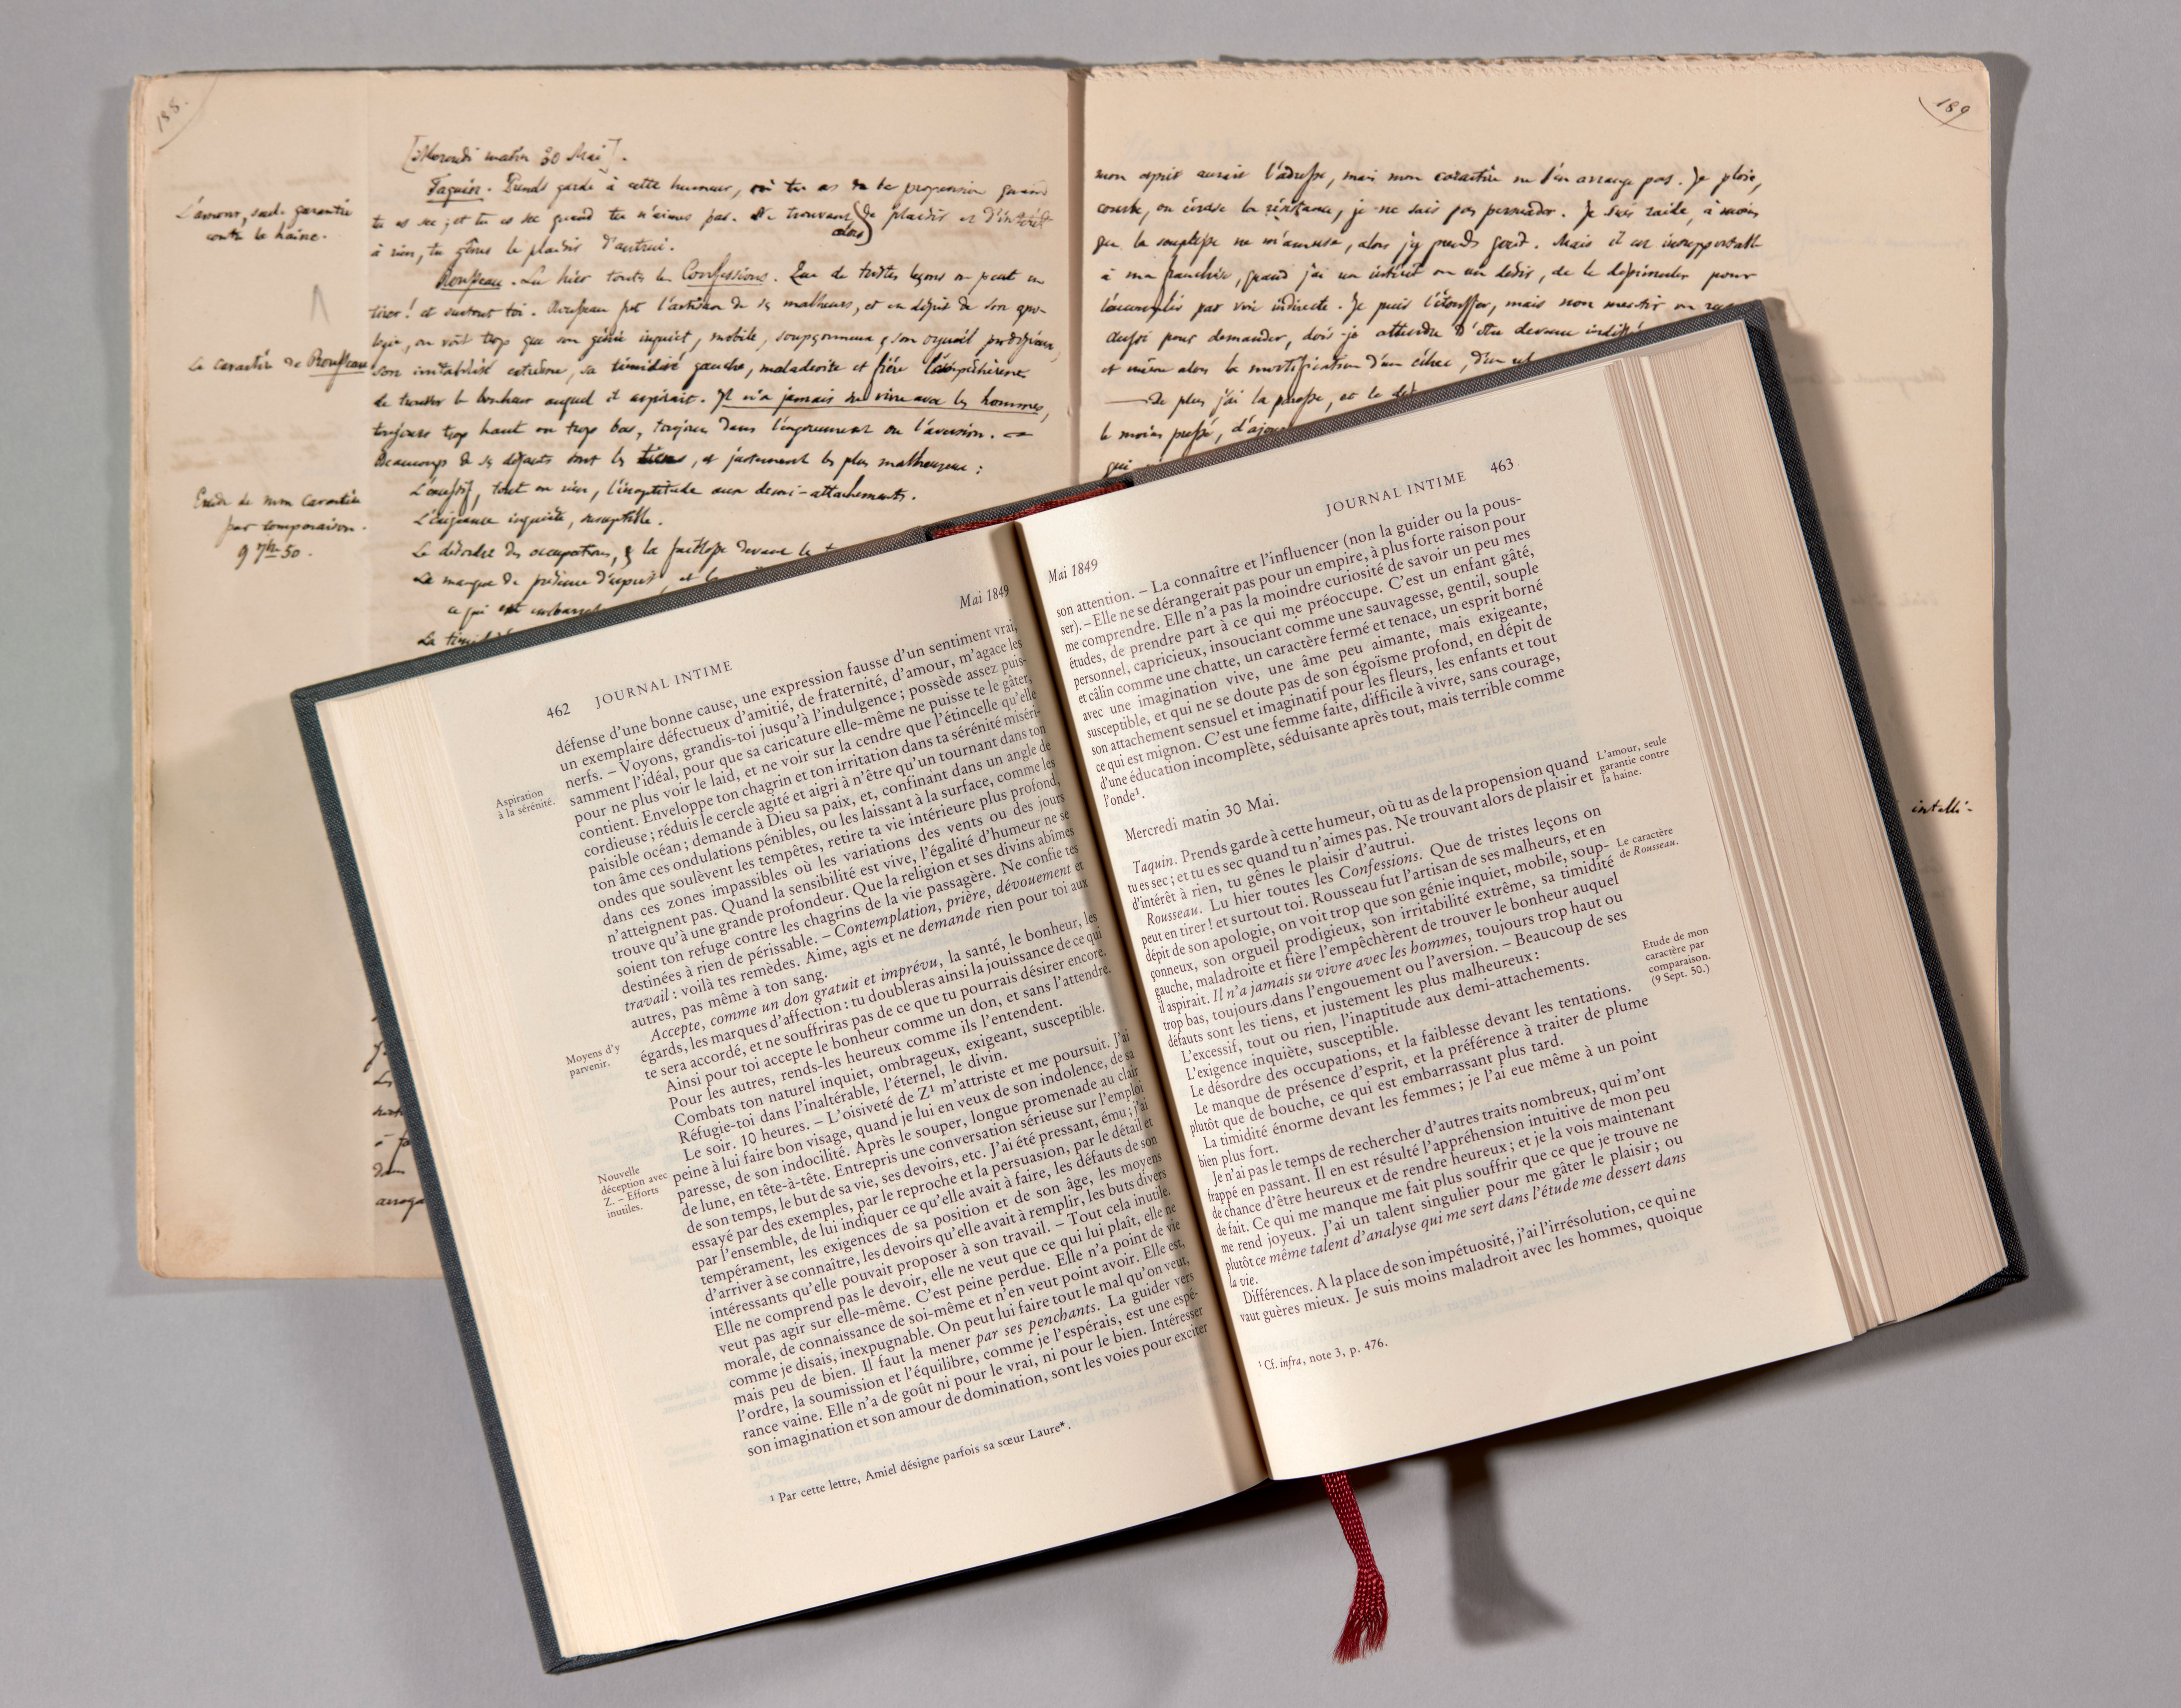 188.
[Mercredi matin 30 Mai].
L'amour, seule garantie
contre la haine.
Taquin. Prends garde à cette humeur, où tu as de la propension quand
tu es sec ; et tu es sec quand tu n'aimes pas. Ne trouvant alors de plaisir et d'intérêt
à rien, tu gênes le plaisir d'autrui.
Rousseau. Lu hier toutes les Confessions. Que de tristes leçons on peut en
tirer ! et surtout toi. Rousseau fut l'artisan de ses malheurs, et en dépit de son apo-
logie, on voit trop que son génie inquiet, mobile, soupçonneux, son orgueil prodigieux,
Le caractère de Rousseau
son irritabilité extrême, sa timidité gauche, maladroite et fière l'empêchèrent
de trouver le bonheur auquel il aspirait. Il n'a jamais su vivre avec les hommes,
toujours trop haut ou trop bas, toujours dans l'engouement ou l'aversion. —
Beaucoup de ses défauts sont les tiens, et justement les plus malheureux :
L'excessif, tout ou rien, l'inaptitude aux demi-attachements.
Etude de mon caractère
par comparaison.
9 7bre 50.
L'exigence inquiète, susceptible.
Le désordre des occupations, & la faiblesse devant les
Le manque de présence d'esprit, et la
ce qui est embarrass
La timid
189
mon esprit aurait l'adresse, mais mon caractère ne s'en arrange pas. Je ploie,
courbe, ou écrase la résistance, je ne sais pas persuader. Je suis raide, à moins
que la souplesse ne m'amuse, alors j'y prends goût. Mais il est insupportable
à ma franchise, quand j'ai un intérêt ou un désir, de le dissimuler pour
l'accomplir par voie indirecte. Je puis l'étouffer, mais non mentir ou ruser
Aussi pour demander, dois-je attendre d'être devenu indiffé
et même alors la mortification d'un échec, d'un
— De plus j'ai la paresse, et le
le moins pressé, d'ajou
qui
intelli-
462 JOURNAL INTIME Mai 1849
défense d'une bonne cause, une expression fausse d'un sentiment vrai,
un exemplaire défectueux d'amitié, de fraternité, d'amour, m'agace les
nerfs. – Voyons, grandis-toi jusqu'à l'indulgence ; possède assez puis-
samment l'idéal, pour que sa caricature elle-même ne puisse te le gâter,
Aspiration
à la sérénité.
pour ne plus voir le laid, et ne voir sur la cendre que l'étincelle qu'elle
contient. Enveloppe ton chagrin et ton irritation dans ta sérénité miséri-
cordieuse ; réduis le cercle agité et aigri à n'être qu'un tournant dans ton
paisible océan ; demande à Dieu sa paix, et, confinant dans un angle de
ton âme ces ondulations pénibles, ou les laissant à la surface, comme les
ondes que soulèvent les tempêtes, retire ta vie intérieure plus profond,
dans ces zones impassibles où les variations des vents ou des jours
n'atteignent pas. Quand la sensibilité est vive, l'égalité d'humeur ne se
trouve qu'à une grande profondeur. Que la religion et ses divins abîmes
soient ton refuge contre les chagrins de la vie passagère. Ne confie tes
destinées à rien de périssable. – Contemplation, prière, dévouement et
travail : voilà tes remèdes. Aime, agis et ne demande rien pour toi aux
autres, pas même à ton sang.
Accepte, comme un don gratuit et imprévu, la santé, le bonheur, les
égards, les marques d'affection : tu doubleras ainsi la jouissance de ce qui
te sera accordé, et ne souffriras pas de ce que tu pourrais désirer encore.
Moyens d'y
parvenir.
Ainsi pour toi accepte le bonheur comme un don, et sans l'attendre.
Pour les autres, rends-les heureux comme ils l'entendent.
Combats ton naturel inquiet, ombrageux, exigeant, susceptible.
Réfugie-toi dans l'inaltérable, l'éternel, le divin.
Le soir. 10 heures. – L'oisiveté de Z¹ m'attriste et me poursuit. J'ai
Nouvelle
déception avec
Z. – Efforts
inutiles.
peine à lui faire bon visage, quand je lui en veux de son indolence, de sa
paresse, de son indocilité. Après le souper, longue promenade au clair
de lune, en tête-à-tête. Entrepris une conversation sérieuse sur l'emploi
de son temps, le but de sa vie, ses devoirs, etc. J'ai été pressant, ému ; j'ai
essayé par des exemples, par le reproche et la persuasion, par le détail et
par l'ensemble, de lui indiquer ce qu'elle avait à faire, les défauts de son
tempérament, les exigences de sa position et de son âge, les moyens
d'arriver à se connaître, les devoirs qu'elle avait à remplir, les buts divers
intéressants qu'elle pouvait proposer à son travail. – Tout cela inutile.
Elle ne comprend pas le devoir, elle ne veut que ce qui lui plaît, elle ne
veut pas agir sur elle-même. C'est peine perdue. Elle n'a point de vie
morale, de connaissance de soi-même et n'en veut point avoir. Elle est,
comme je disais, inexpugnable. On peut lui faire tout le mal qu'on veut,
mais peu de bien. Il faut la mener par ses penchants. La guider vers
l'ordre, la soumission et l'équilibre, comme je l'espérais, est une espé-
rance vaine. Elle n'a de goût ni pour le vrai, ni pour le bien. Intéresser
son imagination et son amour de domination, sont les voies pour exciter
¹ Par cette lettre, Amiel désigne parfois sa sœur Laure*.
Mai 1849 JOURNAL INTIME 463
son attention. – La connaître et l'influencer (non la guider ou la pous-
ser). – Elle ne se dérangerait pas pour un empire, à plus forte raison pour
me comprendre. Elle n'a pas la moindre curiosité de savoir un peu mes
études, de prendre part à ce qui me préoccupe. C'est un enfant gâté,
personnel, capricieux, insouciant comme une sauvagesse, gentil, souple
et câlin comme une chatte, un caractère fermé et tenace, un esprit borné
avec une imagination vive, une âme peu aimante, mais exigeante,
susceptible, et qui ne se doute pas de son égoïsme profond, en dépit de
son attachement sensuel et imaginatif pour les fleurs, les enfants et tout
ce qui est mignon. C'est une femme faite, difficile à vivre, sans courage,
d'une éducation incomplète, séduisante après tout, mais terrible comme
l'onde¹.
Mercredi matin 30 Mai.
Taquin. Prends garde à cette humeur, où tu as de la propension quand
tu es sec ; et tu es sec quand tu n'aimes pas. Ne trouvant alors de plaisir et
L'amour, seule
garantie contre
la haine.
d'intérêt à rien, tu gênes le plaisir d'autrui.
Rousseau. Lu hier toutes les Confessions. Que de tristes leçons on
peut en tirer ! et surtout toi. Rousseau fut l'artisan de ses malheurs, et en
Le caractère
de Rousseau.
dépit de son apologie, on voit trop que son génie inquiet, mobile, soup-
çonneux, son orgueil prodigieux, son irritabilité extrême, sa timidité
gauche, maladroite et fière l'empêchèrent de trouver le bonheur auquel
il aspirait. Il n'a jamais su vivre avec les hommes, toujours trop haut ou
trop bas, toujours dans l'engouement ou l'aversion. – Beaucoup de ses
défauts sont les tiens, et justement les plus malheureux :
Etude de mon
caractère par
comparaison.
(9 Sept. 50.)
L'excessif, tout ou rien, l'inaptitude aux demi-attachements.
L'exigence inquiète, susceptible.
Le désordre des occupations, et la faiblesse devant les tentations.
Le manque de présence d'esprit, et la préférence à traiter de plume
plutôt que de bouche, ce qui est embarrassant plus tard.
La timidité énorme devant les femmes ; je l'ai eue même à un point
bien plus fort.
Je n'ai pas le temps de rechercher d'autres traits nombreux, qui m'ont
frappé en passant. Il en est résulté l'appréhension intuitive de mon peu
de chance d'être heureux et de rendre heureux ; et je la vois maintenant
de fait. Ce qui me manque me fait plus souffrir que ce que je trouve ne
me rend joyeux. J'ai un talent singulier pour me gâter le plaisir ; ou
plutôt ce même talent d'analyse qui me sert dans l'étude me dessert dans
la vie.
Différences. A la place de son impétuosité, j'ai l'irrésolution, ce qui ne
vaut guères mieux. Je suis moins maladroit avec les hommes, quoique
¹ Cf. infra, note 3, p. 476.